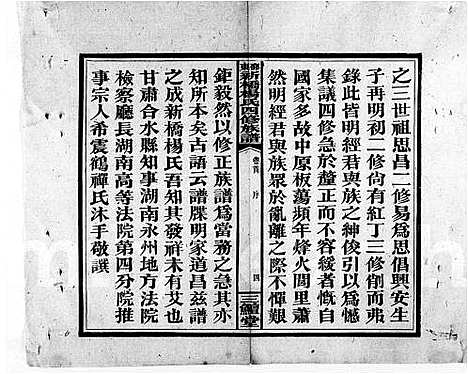 之三世祖思昌二修易爲思倡興安生
子再明初二修尚有紅丁三修削而弗
錄此皆明經君與族之紳俊引以爲憾
集議四修急於釐正而不容緩者慨自
國家多故中原板蕩頻年烽火閭里蕭
然明經君與族眾於亂離之際不憚艱
新橋楊氏四修族譜
卷首 序
四
三鱣堂
鉅毅然以修正族譜爲當務之急其亦
知所本矣古語云譜牒明家道昌兹譜
之成新橋楊氏吾知其發祥未有艾也
甘肅合水縣知事湖南永州地方法院
檢察廳長湖南高等法院第四分院推
事宗人希震鶴禪氏沐手敬譔